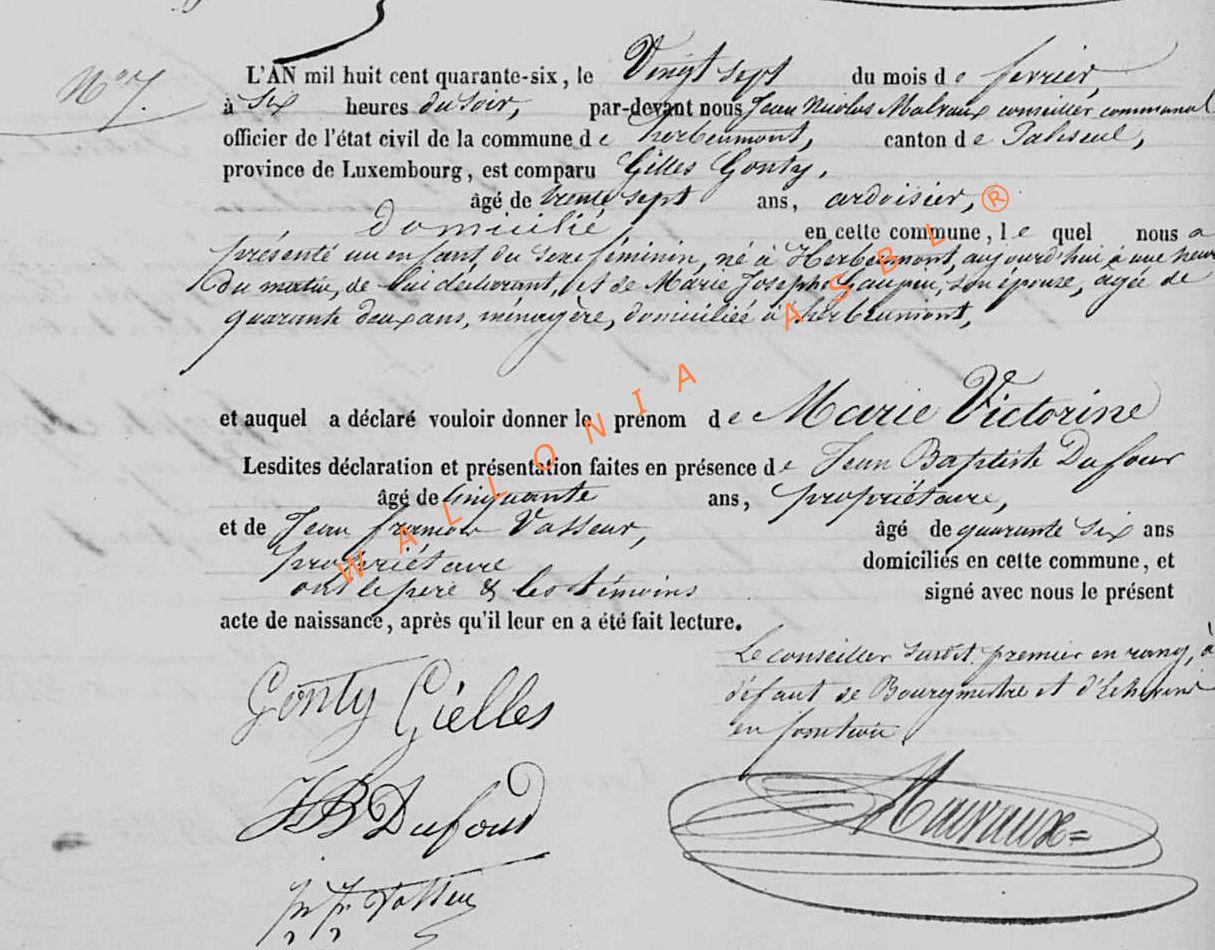 N° 7.
L'AN mil huit cent quarante-six, le Vingt sept du mois de fevrier,
à six heures du soir, par-devant nous Jean Nicolas Malvaux conseiller communal
officier de l'état civil de la commune de herbeumont, canton de Paliseul,
province de Luxembourg, est comparu Gilles Gonty,
âgé de trente sept ans, ardoisier, ®
domicilié en cette commune, le quel nous a
présenté un enfant du sexe féminin, né à Herbeumont, aujourd'hui à une heure
du matin, de lui déclarant, et de Marie Josephe Gaupin, son épouse, âgée de
quarante deux ans, ménagère, domiciliée à herbeumont,
et auquel a déclaré vouloir donner le prénom de Marie Victorine
Lesdites déclaration et présentation faites en présence de Jean Baptiste Dufour
âgé de Cinquante ans, propriétaire,
et de Jean françois Vasseur, âgé de quarante six ans
propriétaire domiciliés en cette commune, et
ont le père & les témoins signé avec nous le présent
acte de naissance, après qu'il leur en a été fait lecture.
Le conseiller susdt. premier en rang, à
défaut de Bourgmestre et d'Echevins
en fonction.
Gonty Gielles
JB Dufour
Malvaux
WALLONIA ASBL